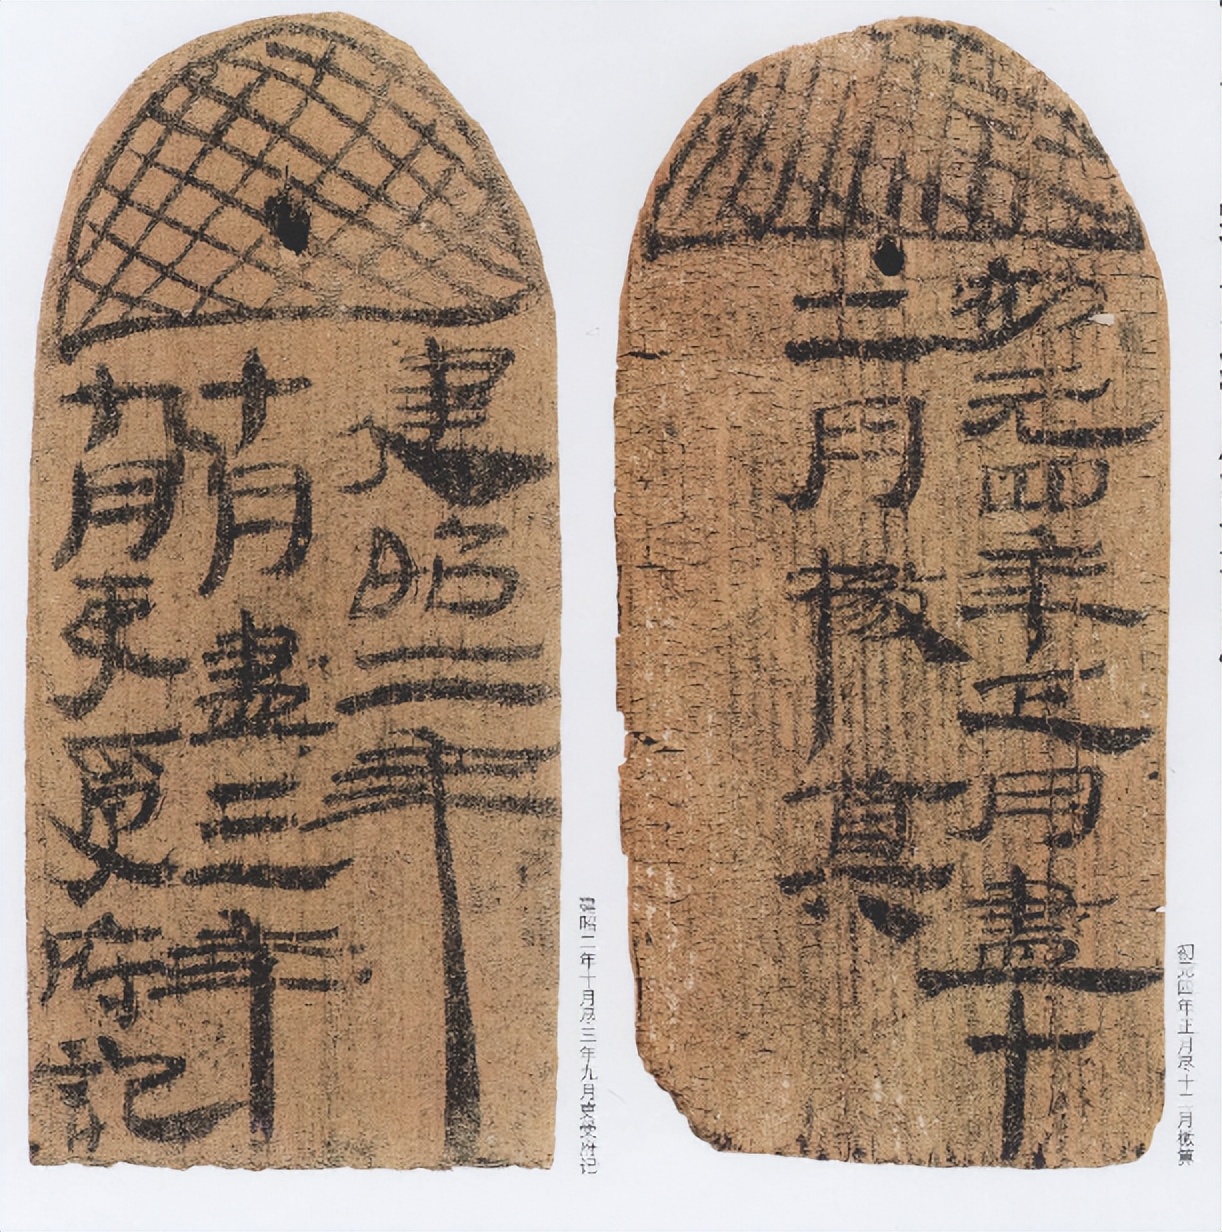 建昭二年
十月盡三年
九月吏受府記
建昭二年十月尽三年九月吏受府记
初元四年正月盡十
二月檄算
初元四年正月尽十二月檄算